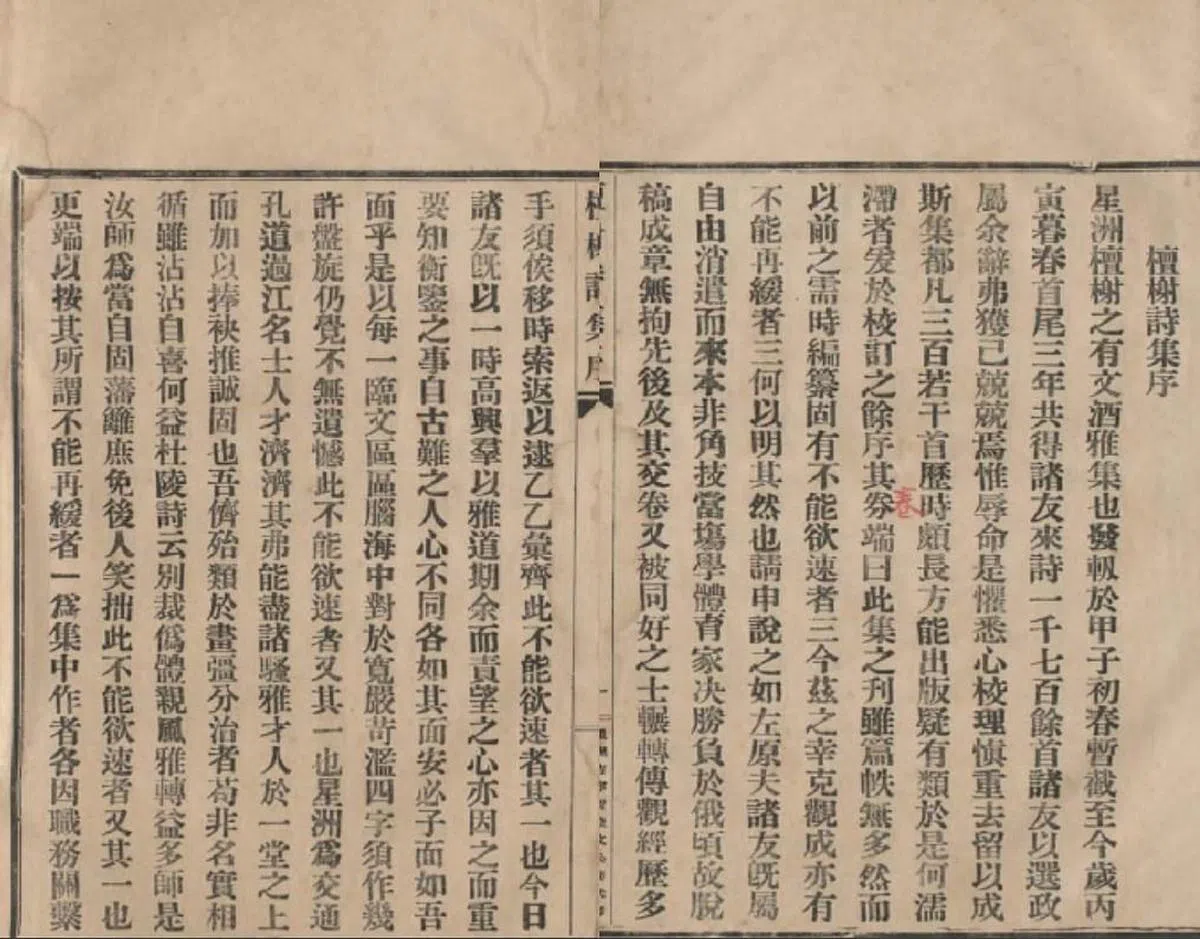 檀榭詩集序
星洲檀榭之有文酒雅集也發軔於甲子初春暫截至今歲丙
寅暮春首尾三年共得諸友來詩一千七百餘首諸友以選政
屬余辭弗獲已兢兢焉惟辱命是懼悉心校理愼重去留以成
斯集都凡三百若干首歷時頗長方能出版疑有類於是何濡
滯者爰於校訂之餘序其劵端曰此集之刊雖篇帙無多然而
卷
以前之需時編纂固有不能欲速者三今茲之幸克觀成亦有
不能再緩者三何以明其然也請申說之如左原夫諸友旣屬
自由消遣而來本非角技當塲學體育家决勝負於俄頃故脫
稿成章無拘先後及其交卷又被同好之士輾轉傳觀經歷多
檀榭詩集序
手須俟移時索返以逮乙乙彙齊此不能欲速者其一也今日
諸友旣以一時高興羣以雅道期余而責望之心亦因之而重
要知衡鑒之事自古難之人心不同各如其面安必子面如吾
面乎是以每一臨文區區腦海中對於寬嚴苛濫四字須作幾
許盤旋仍覺不無遺憾此不能欲速者又其一也星洲爲交通
孔道過江名士人才濟濟其弗能盡諸騷雅才人於一堂之上
而加以捧袂推誠固也吾儕殆類於畫彊分治者苟非名實相
循雖沾沾自喜何益杜陵詩云別裁僞體親風雅轉益多師是
汝師爲當自固藩籬庶免後人笑拙此不能欲速者又其一也
更端以按其所謂不能再緩者一爲集中作者各因職務關繫